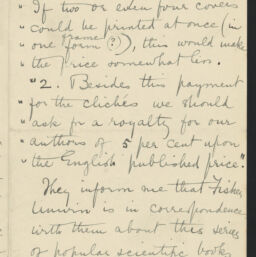 " If two or even four covers
" could be printed at once (in
same
" one form (?)), this would make
" the price somewhat less.
" 2. Besides this payment
" for the clichés we should
" ask for a royalty for our
" authors of 5 per cent upon
" the English published price".
They inform me that Fisher
Unwin is in correspondence
with them about this series
of popular scientific books